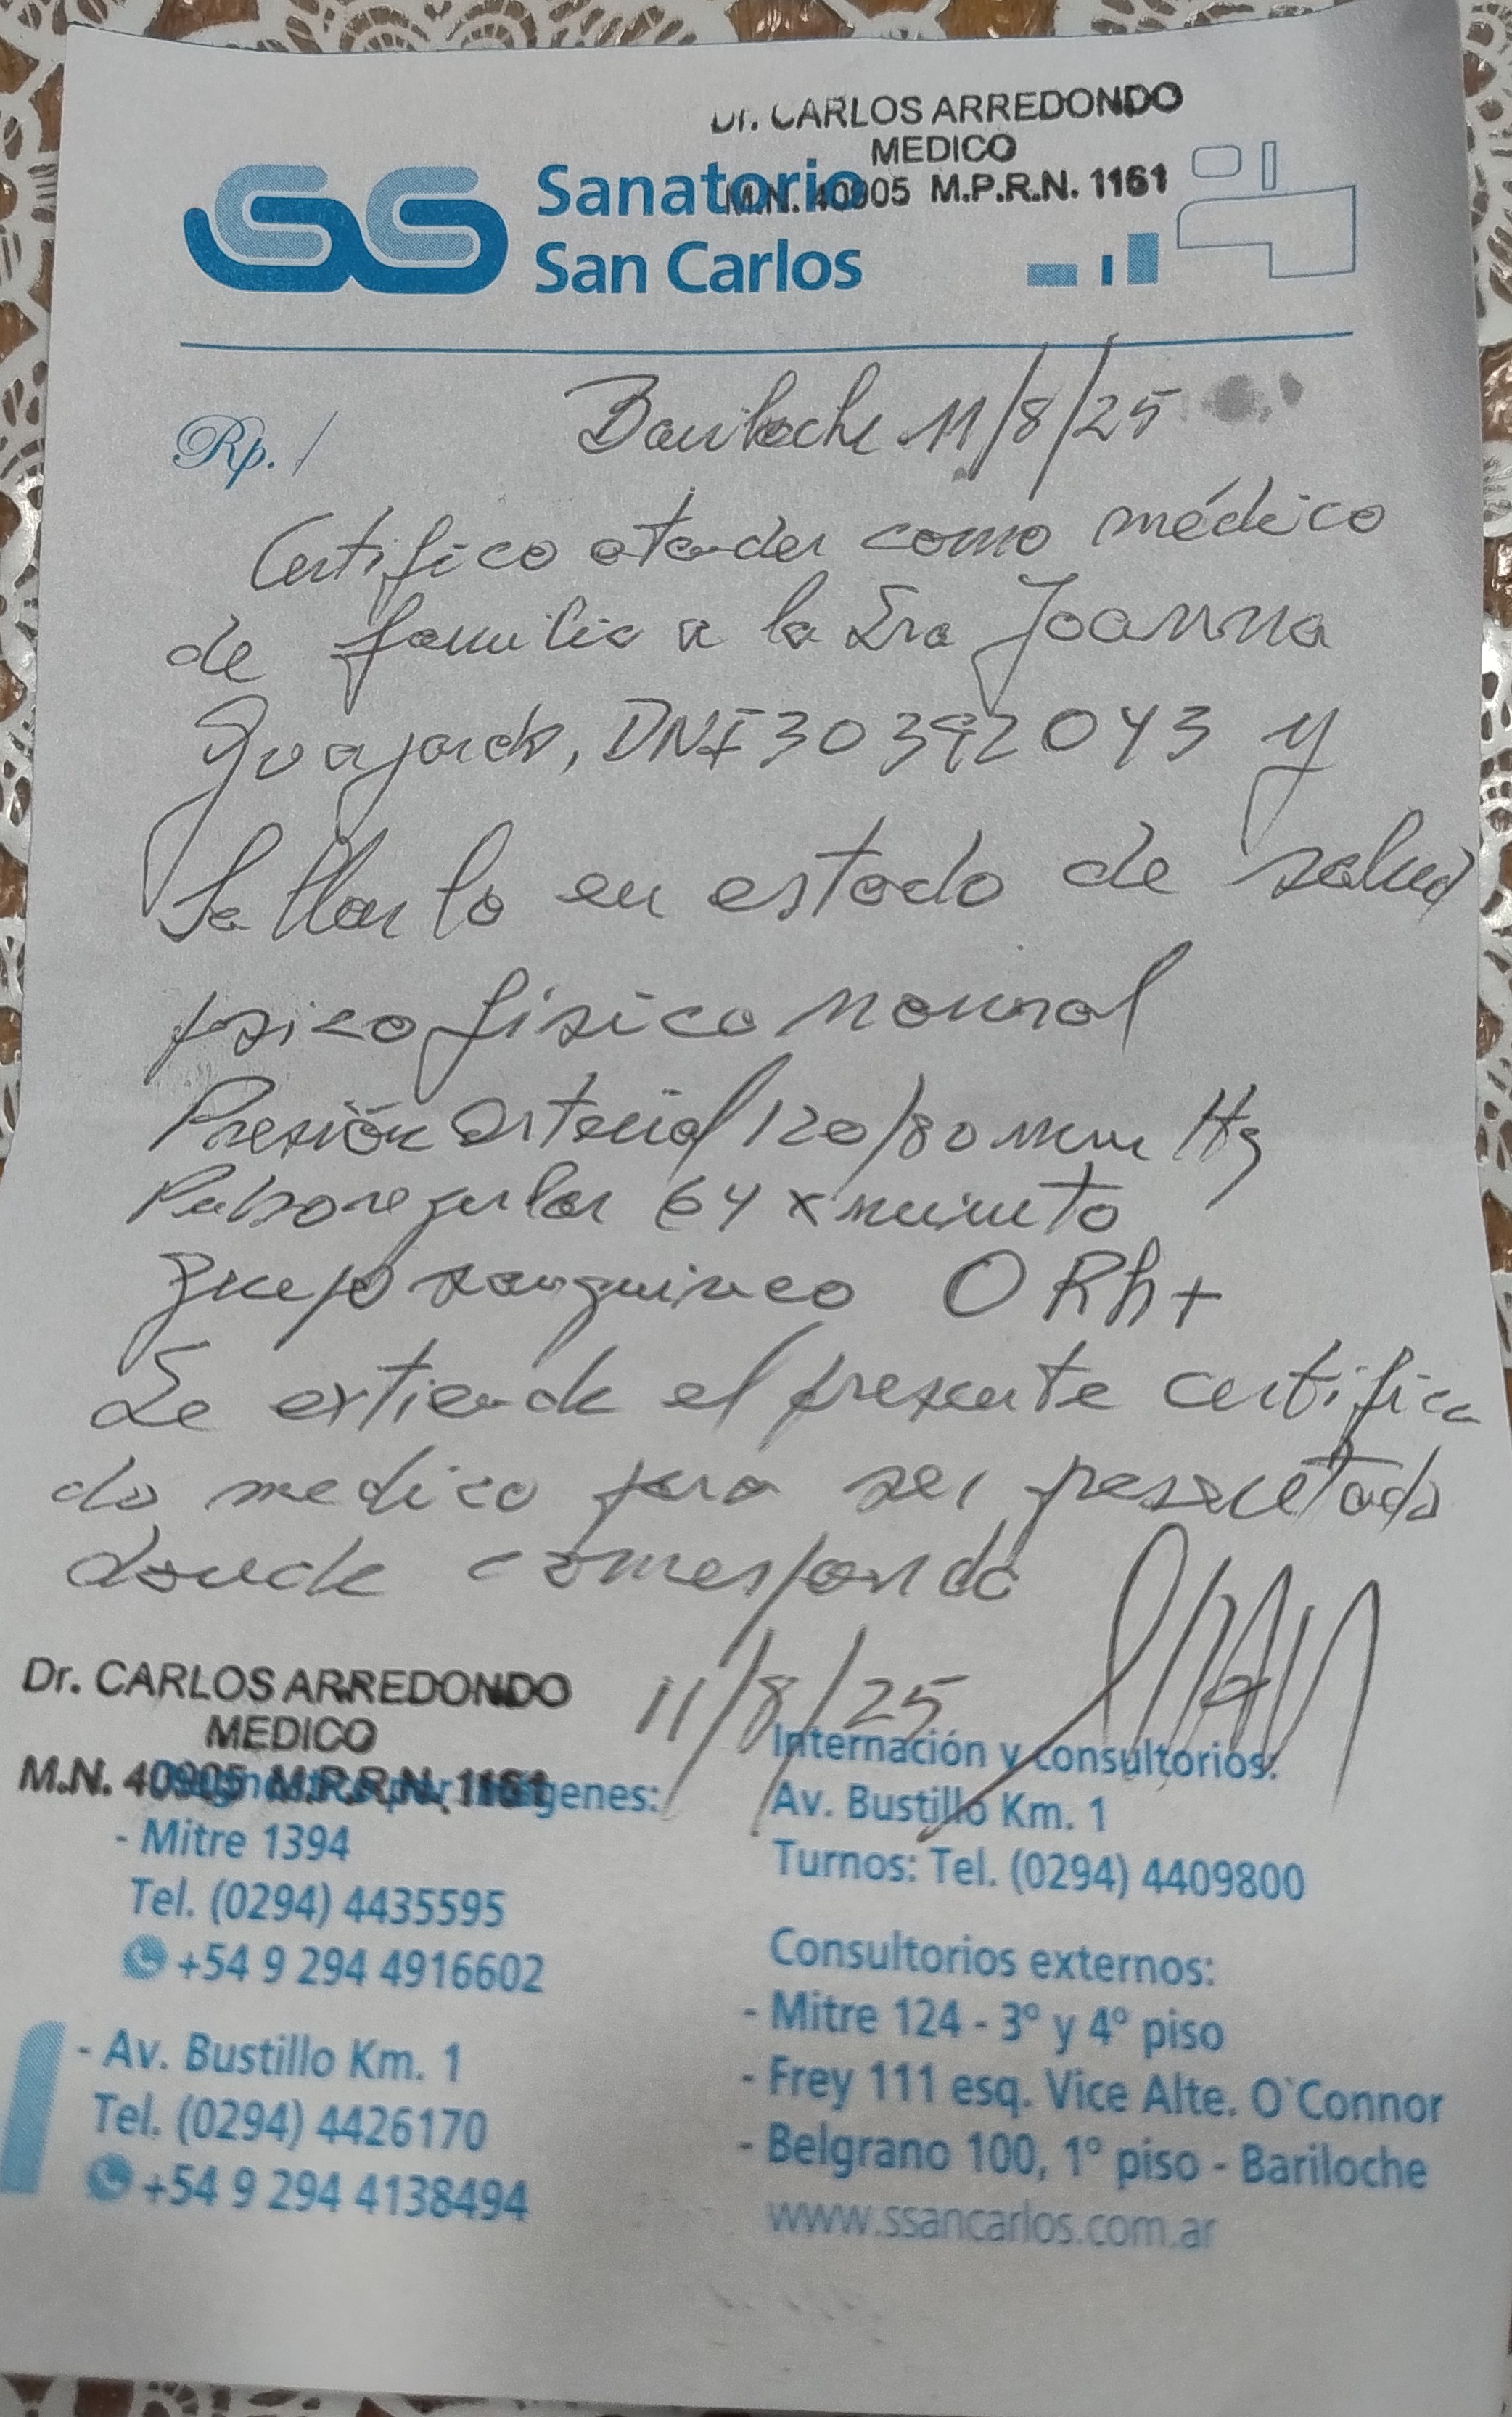 Dr. CARLOS ARREDONDO
MEDICO
M.N. 40905 M.P.R.N. 1161
Sanatorio
San Carlos
Bariloche 11/8/25
Rp. /
Certifico atender como médico
de familia a la Sra Joanna
Guajardo, DNI 30392043 y
hallarla en estado de salud
psicofísico normal
Presión arterial 120/80 mm Hg
Pulso regular 64 x minuto
grupo sanguineo O Rh+
Se extiende el presente certifica
do medico para ser presentado
donde corresponda
11/8/25
Dr. CARLOS ARREDONDO
MEDICO
M.N. 40905 M.P.R.N. 1161
Diagnóstico por imágenes:
- Mitre 1394
Tel. (0294) 4435595
+54 9 294 4916602
- Av. Bustillo Km. 1
Tel. (0294) 4426170
+54 9 294 4138494
Internación y consultorios:
Av. Bustillo Km. 1
Turnos: Tel. (0294) 4409800
Consultorios externos:
- Mitre 124 - 3° y 4° piso
- Frey 111 esq. Vice Alte. O`Connor
- Belgrano 100, 1° piso - Bariloche
www.ssancarlos.com.ar